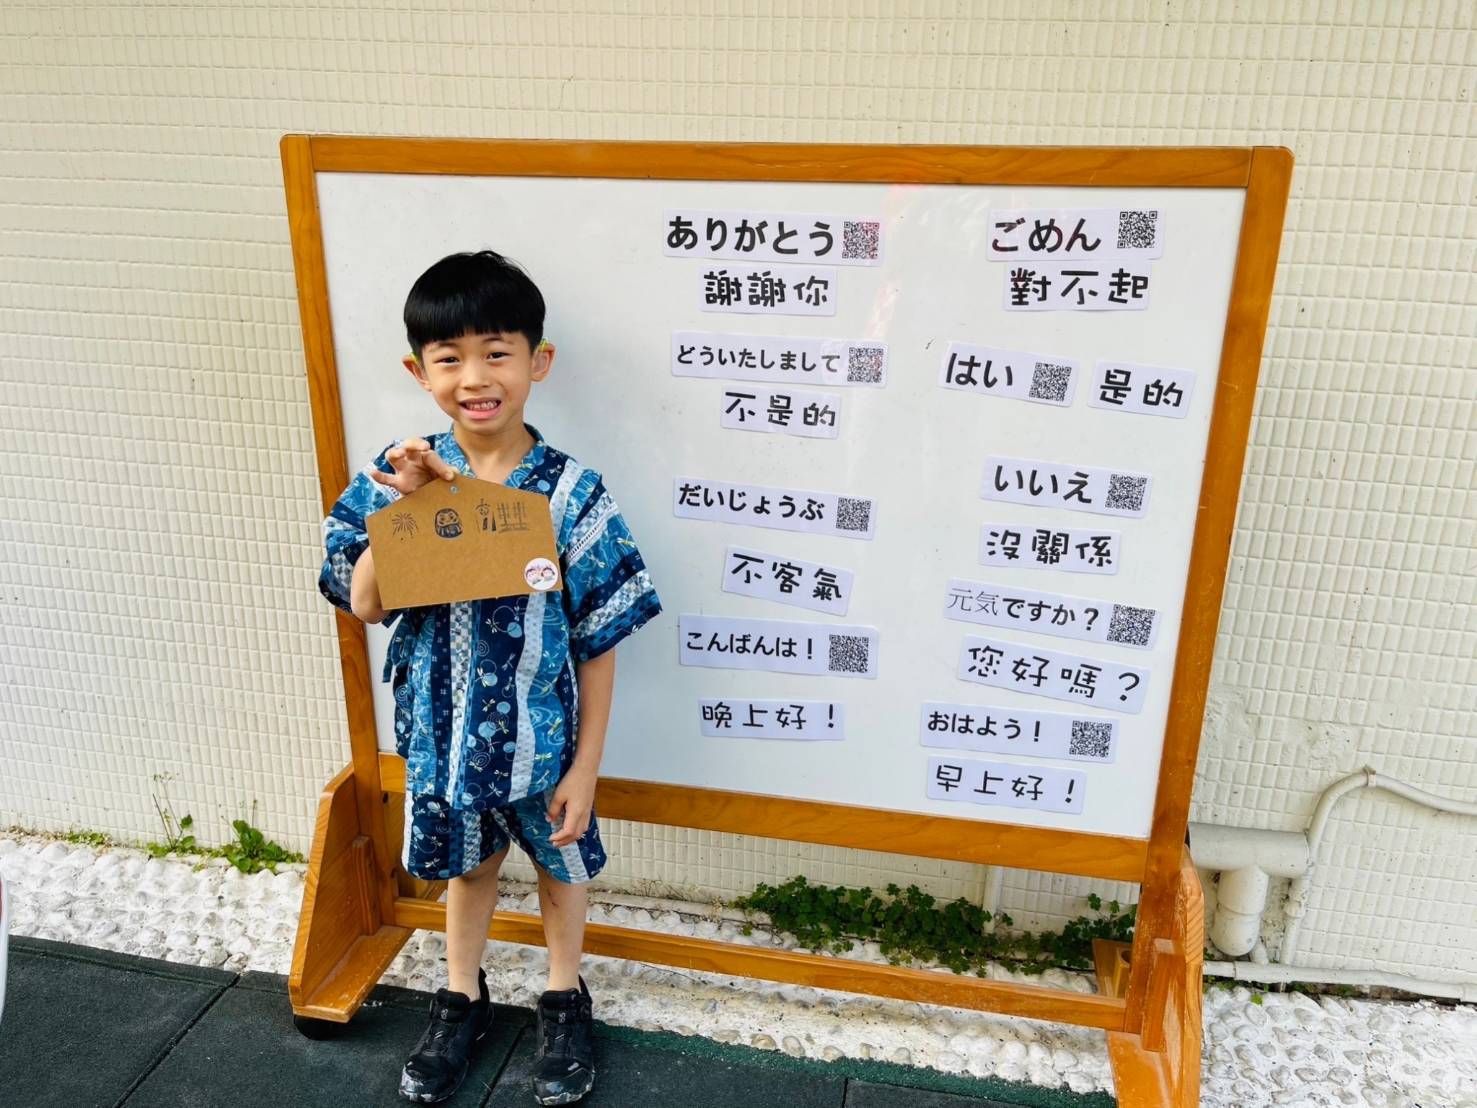 ありがとう
謝謝你
どういたしまして
不是的
だいじょうぶ
不客氣
こんばんは！
晚上好！
ごめん
對不起
はい
是的
いいえ
沒關係
元気ですか？
您好嗎？
おはよう！
早上好！